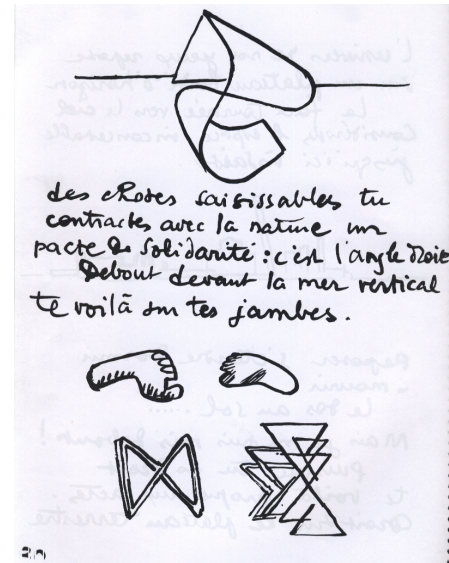 des choses saisissables tu
contractes avec la nature un
pacte de solidarité : c'est l'angle droit
Debout devant la mer vertical
te voilà sur tes jambes.